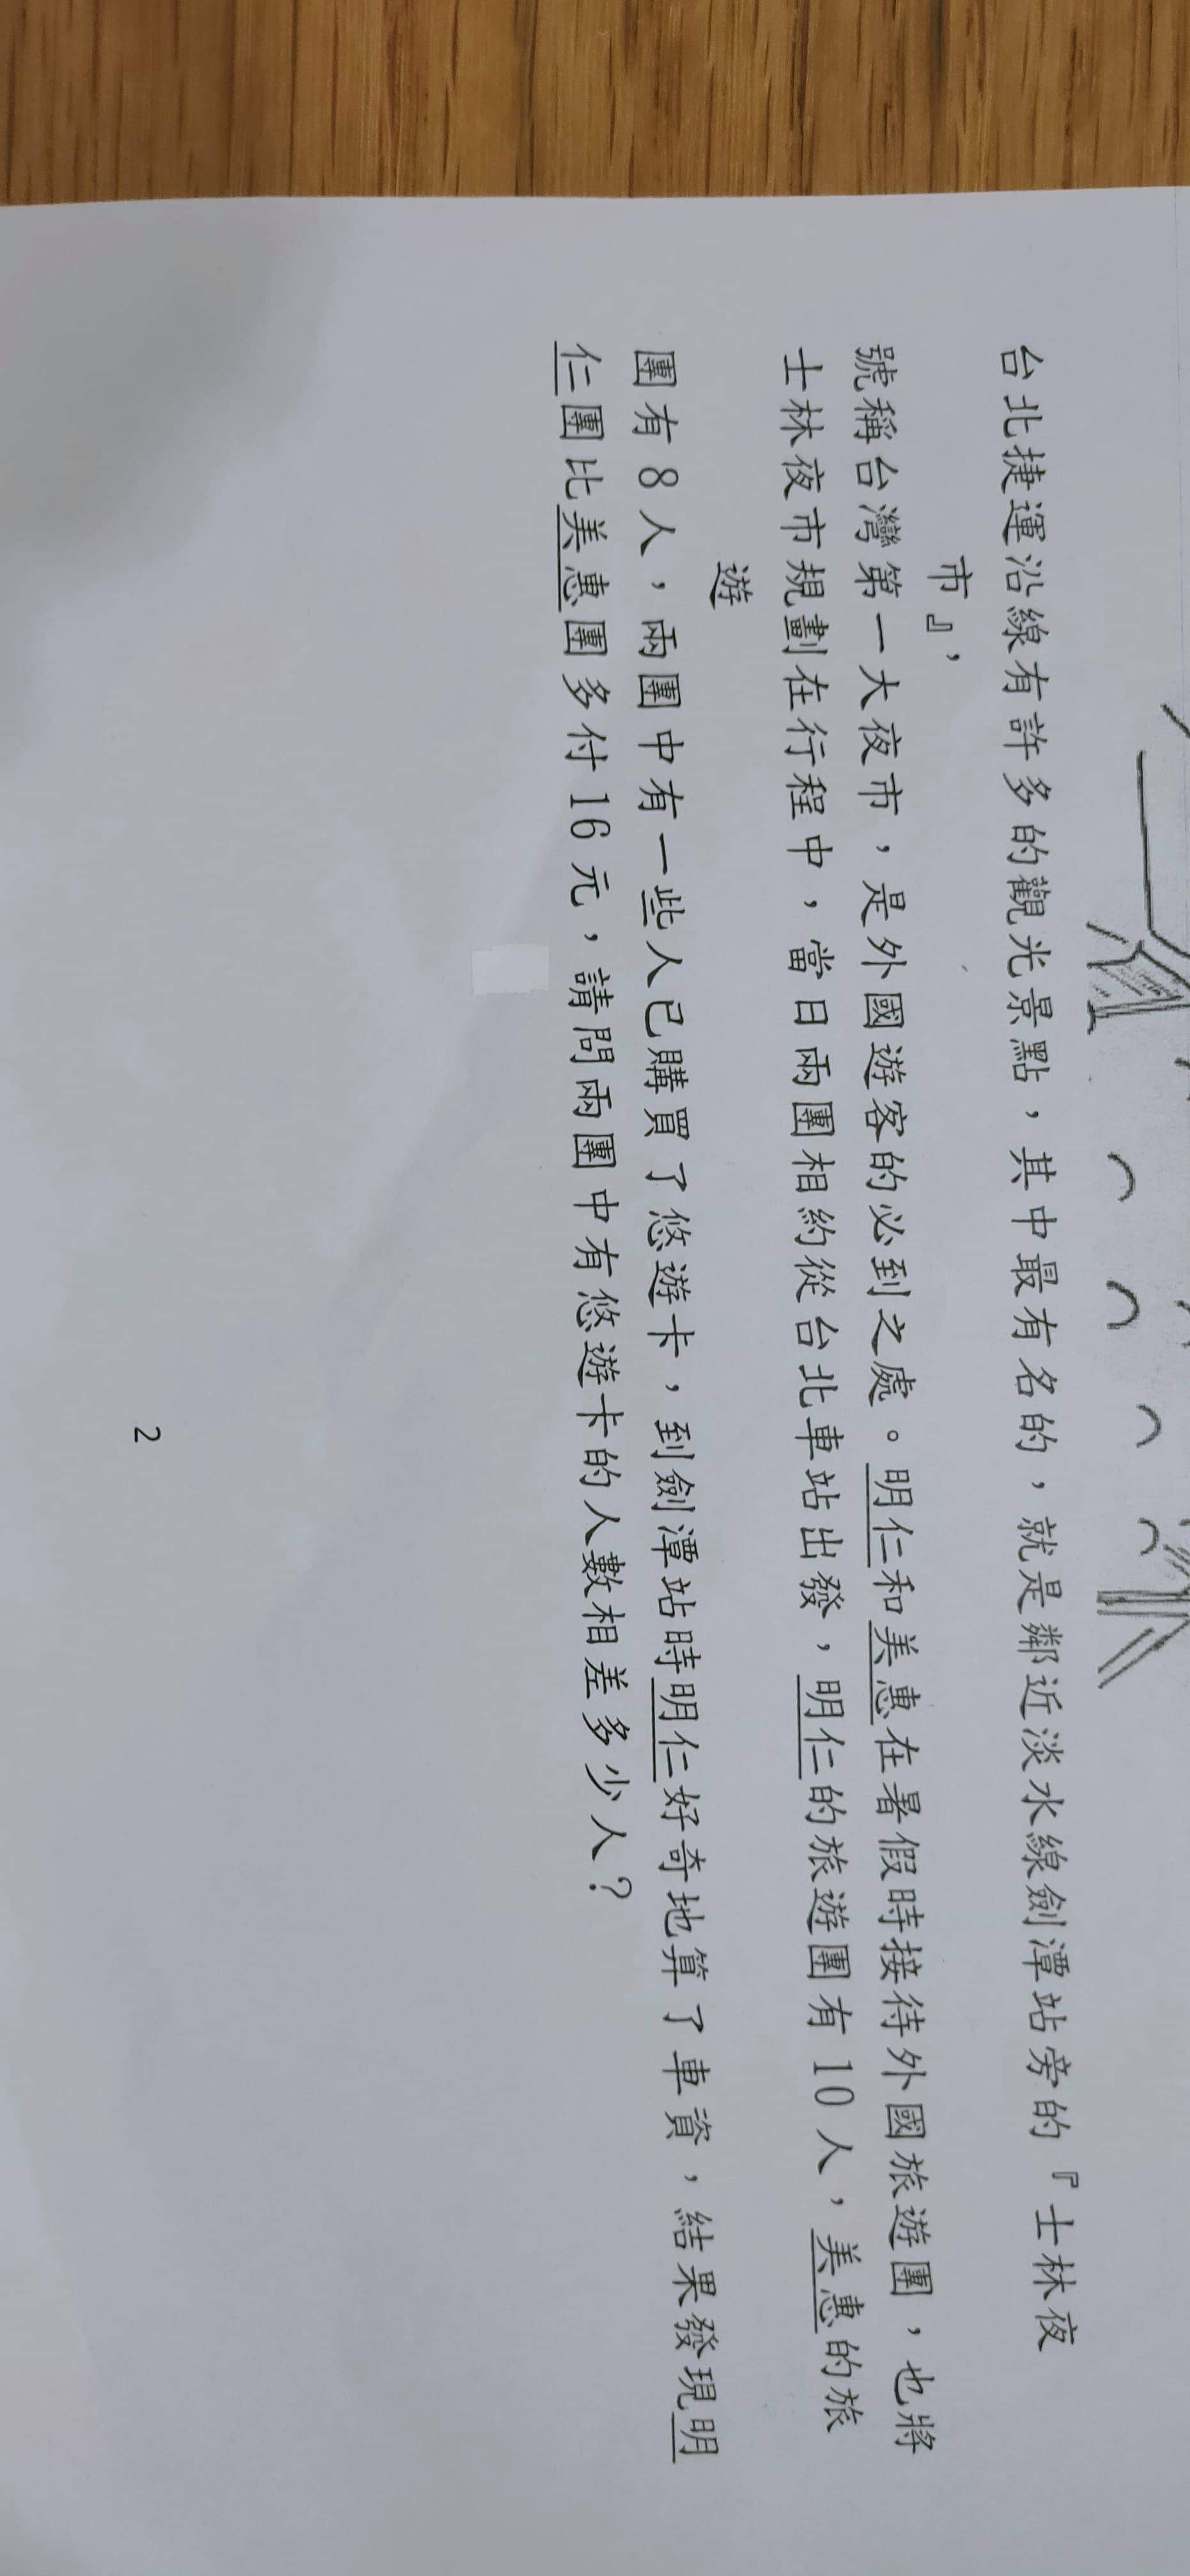 台北捷運沿線有許多的觀光景點，其中最有名的，就是鄰近淡水線劍潭站旁的『士林夜
市』，
號稱台灣第一大夜市，是外國遊客的必到之處。明仁和美惠在暑假時接待外國旅遊團，也將
士林夜市規劃在行程中，當日兩團相約從台北車站出發，明仁的旅遊團有10人，美惠的旅
遊
團有8人，兩團中有一些人已購買了悠遊卡，到劍潭站時明仁好奇地算了車資，結果發現明
仁團比美惠團多付16元，請問兩團中有悠遊卡的人數相差多少人？
2